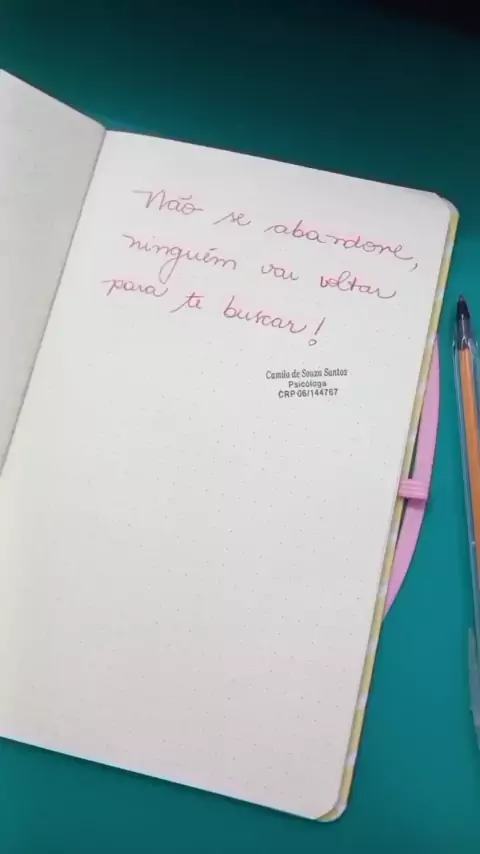 Não se abandone,
ninguém vai voltar
para te buscar!
Camila de Souza Santos
Psicóloga
CRP 06/144767